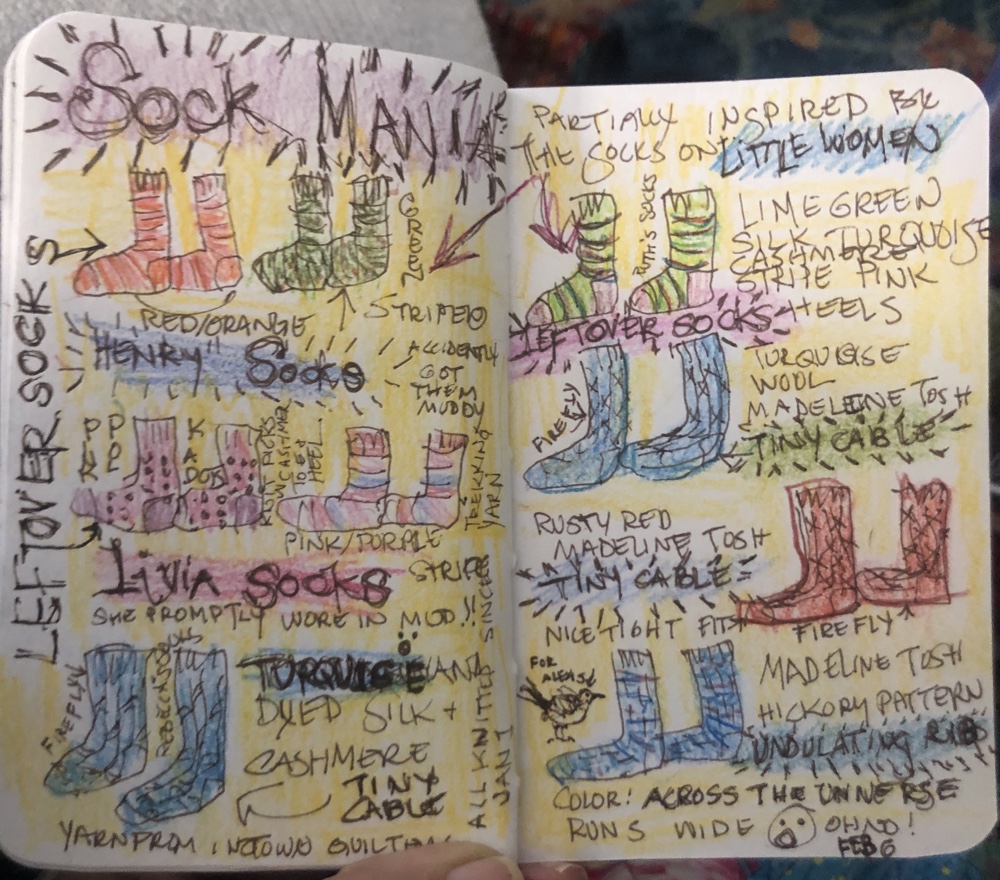 SOCK MANIA
LEFTOVER SOCKS
GREEN
RED/ORANGE
STRIPED
HENRY SOCKS
ACCIDENTLY
GOT
THEM
MUDDY
PINK/PURPLE
STRIPE
TREKKING
YARN
LIVIA SOCKS
SHE PROMPTLY WORE IN MUD!!
FIREFLY
REBECCA SOCKS
TURQUISE HAND
DYED SILK +
CASHMERE
TINY
CABLE
ALL KNITTED SINCE
JAN 1
YARN FROM INTOWN QUILTERS
PARTIALLY INSPIRED BY
THE SOCKS ON LITTLE WOMEN
LIME GREEN
SILK TURQUOISE
CASHMERE
STRIPE PINK
HEELS
LEFTOVER SOCKS
FIREFLY
TURQUOISE
WOOL
MADELEINE TOSH
TINY CABLE
RUSTY RED
MADELINE TOSH
TINY CABLE
NICE TIGHT FIT
FIREFLY
FOR
MADELINE TOSH
HICKORY PATTERN
UNDULATING RIB
COLOR: ACROSS THE UNIVERSE
RUNS WIDE OH NO!
FEB 6